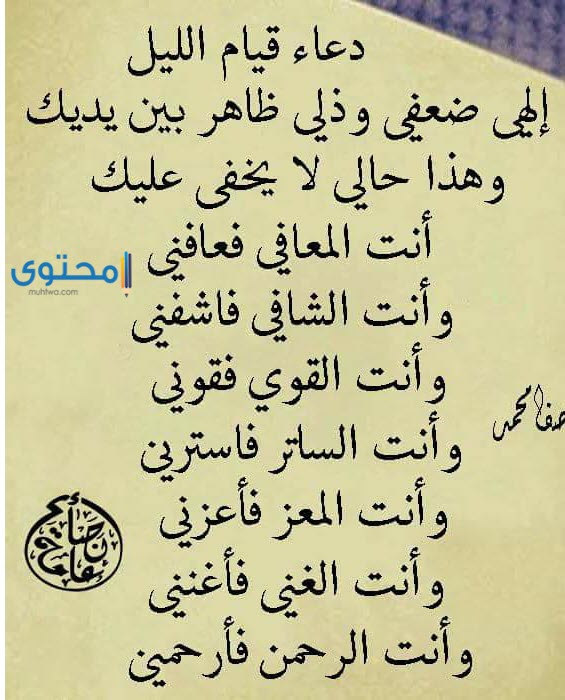 دعاء قيام الليل
إلهي ضعفي وذلي ظاهر بين يديك
وهذا حالي لا يخفى عليك
أنت المعافي فعافني
محتوى
muhtwa.com
وأنت الشافي فاشفني
وأنت القوي فقوني
صفا محمد
وأنت الساتر فاسترني
وأنت المعز فأعزني
وأنت الغني فأغنني
وأنت الرحمن فأرحمني